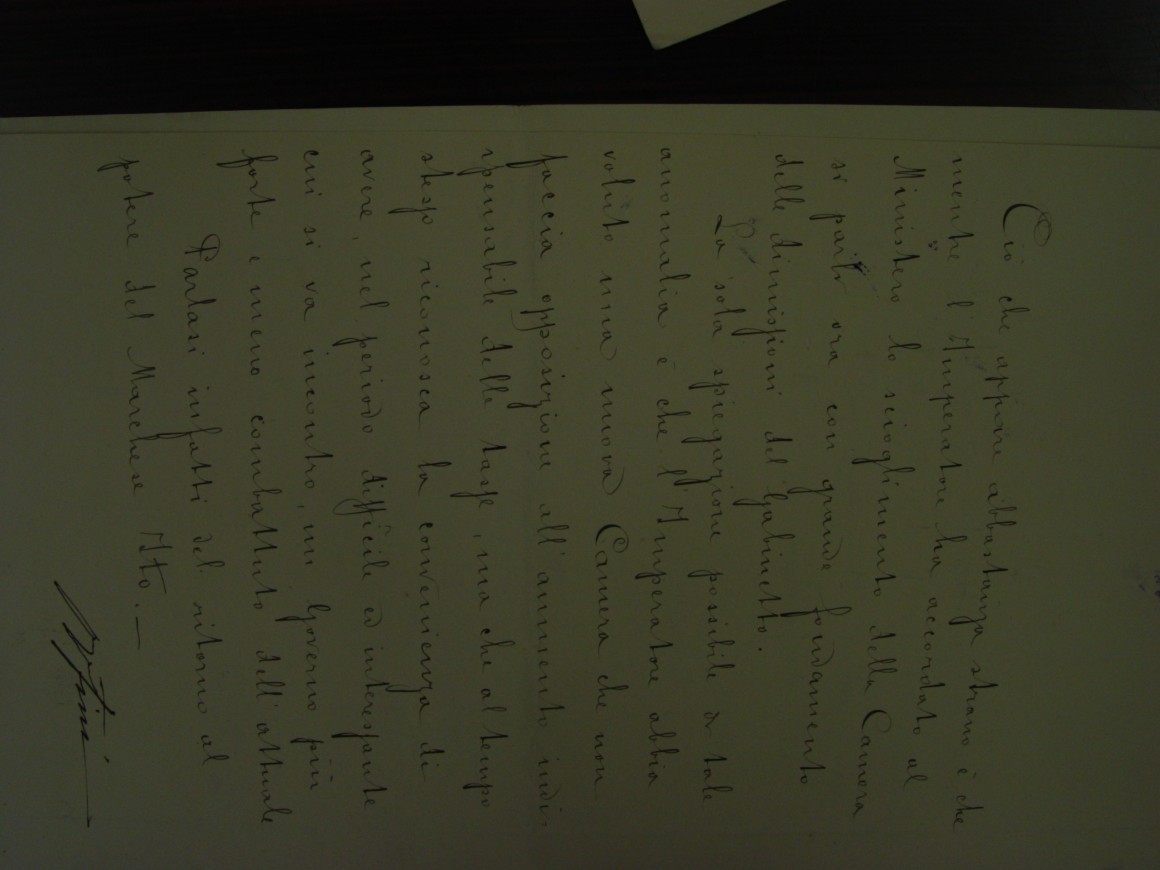 Ciò che appare abbastanza strano è che
mentre l'Imperatore ha accordato al
Ministero lo scioglimento della Camera
si parli ora con grande fondamento
delle dimissioni del Gabinetto.
La sola spiegazione possibile di tale
anomalia è che l'Imperatore abbia
voluto una nuova Camera che non
faccia opposizione all'aumento indi-
spensabile delle tasse, ma che al tempo
stesso riconosca la convenienza di
avere, nel periodo difficile ed interessante
cui si va incontro, un Governo più
forte e meno combattuto dell'attuale
Parlasi infatti del ritorno al
potere del Marchese Ito. —